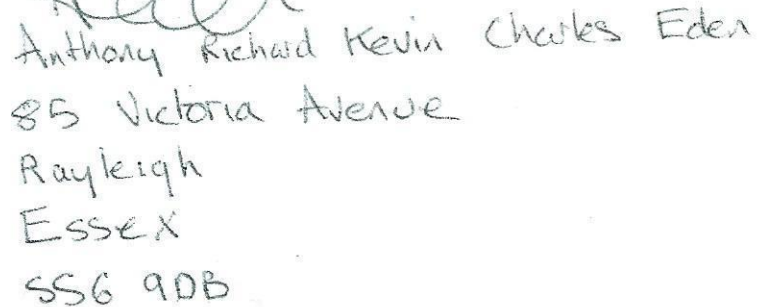 Anthony Richard Kevin Charles Eden
85 Victoria Avenue
Rayleigh
Essex
SS6 9DB